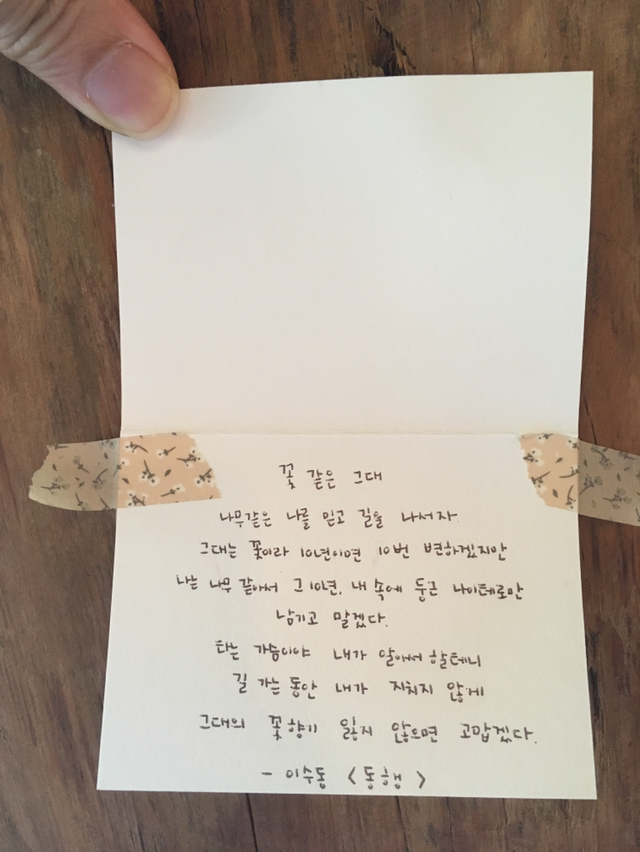 꽃 같은 그대
나무같은 나를 믿고 길을 나서자
그대는 꽃이라 10년이면 10번 변하겠지만
나는 나무 같아서 그 10년, 내 속에 둥근 나이테로만
남기고 말겠다.
타는 가슴이야 내가 알아서 할테니
길 가는 동안 내가 지치지 않게
그대의 꽃향기 잃지 않으면 고맙겠다.
- 이수동 <동행>